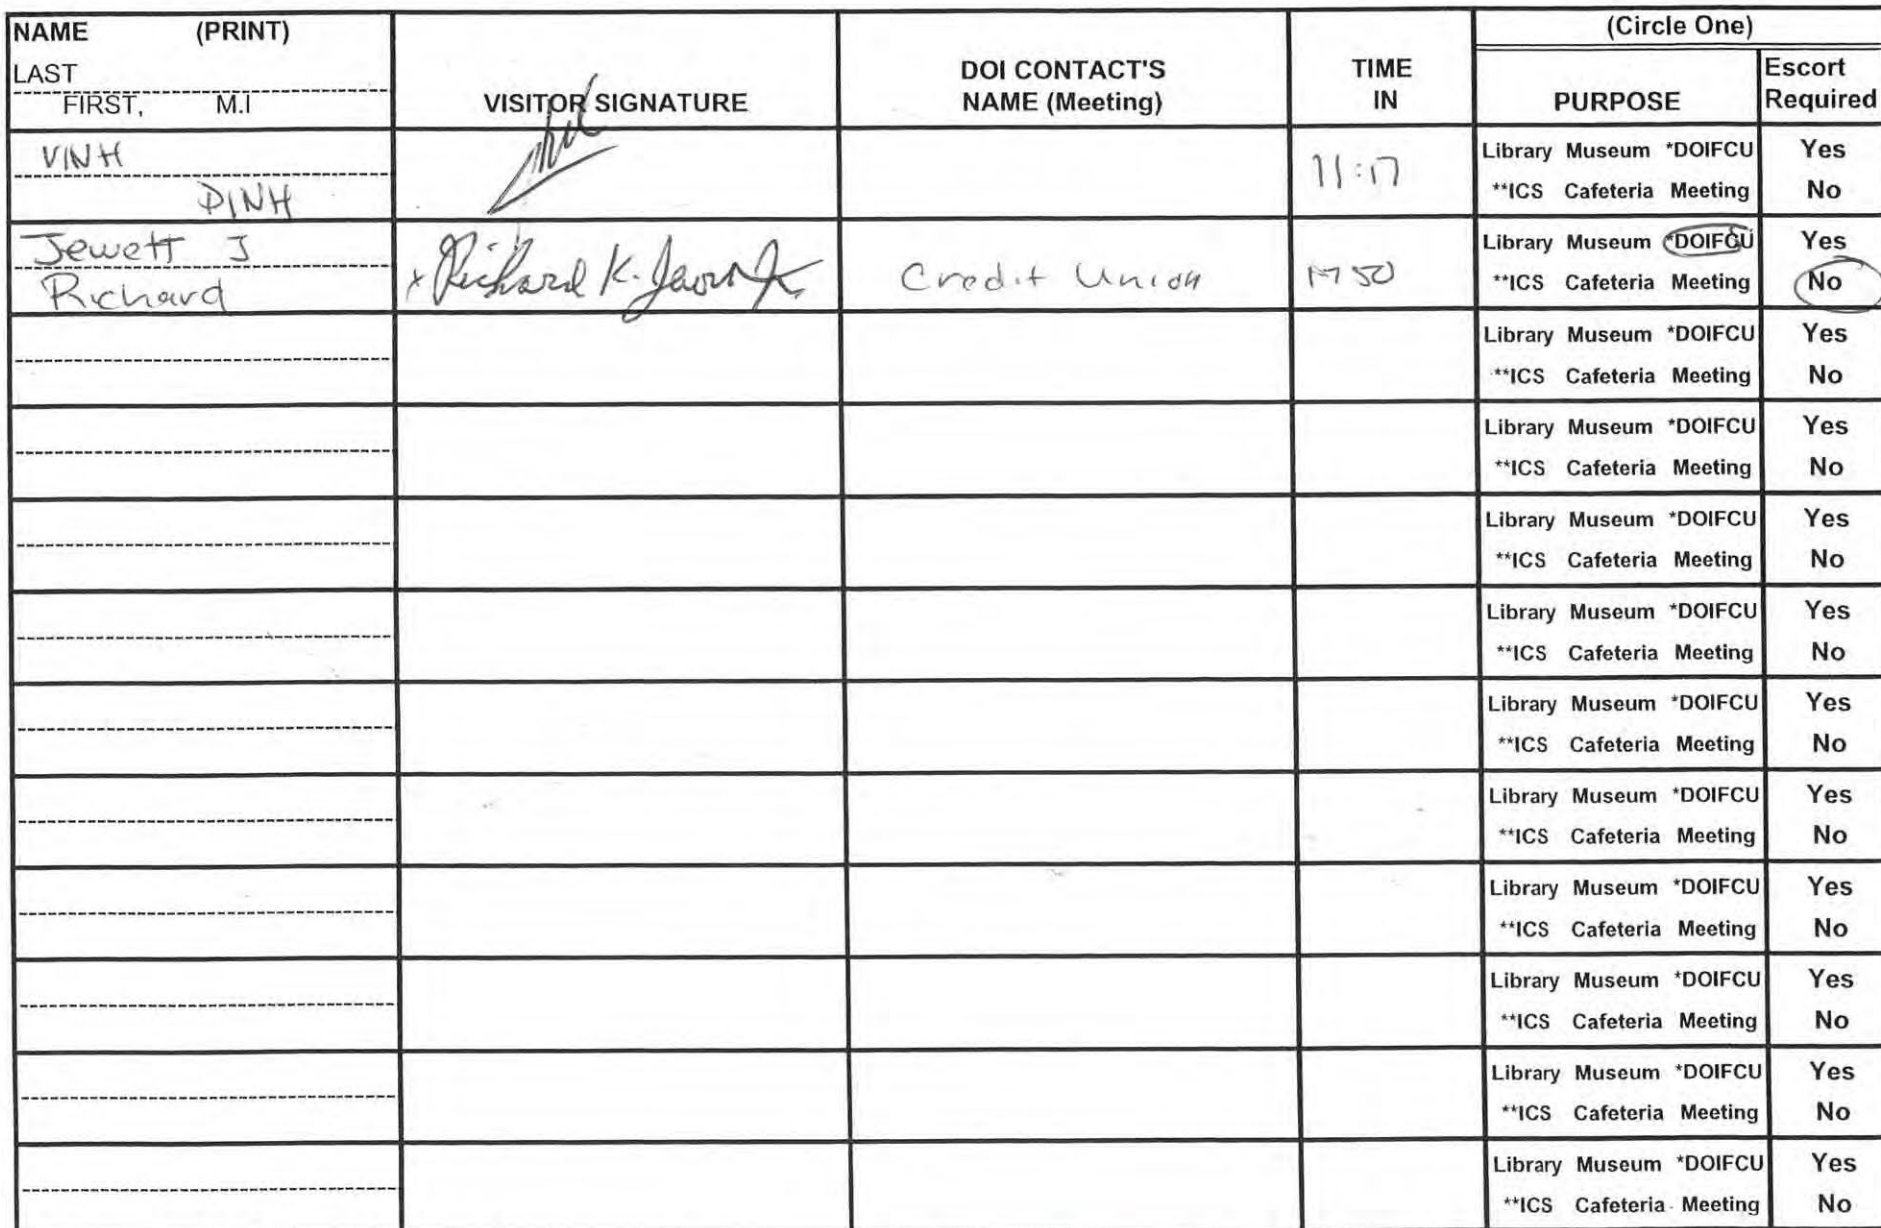 NAME (PRINT)
LAST
FIRST, M.I
VISITOR SIGNATURE
DOI CONTACT'S
NAME (Meeting)
TIME
IN
(Circle One)
PURPOSE
Escort
Required
VINH
DINH
11:17
Library Museum *DOIFCU Yes
**ICS Cafeteria Meeting No
Jewett J
Richard
Richard K.
Credit Union
Library Museum *DOIFCU Yes
**ICS Cafeteria Meeting No
Library Museum *DOIFCU Yes
**ICS Cafeteria Meeting No
Library Museum *DOIFCU Yes
**ICS Cafeteria Meeting No
Library Museum *DOIFCU Yes
**ICS Cafeteria Meeting No
Library Museum *DOIFCU Yes
**ICS Cafeteria Meeting No
Library Museum *DOIFCU Yes
**ICS Cafeteria Meeting No
Library Museum *DOIFCU Yes
**ICS Cafeteria Meeting No
Library Museum *DOIFCU Yes
**ICS Cafeteria Meeting No
Library Museum *DOIFCU Yes
**ICS Cafeteria Meeting No
Library Museum *DOIFCU Yes
**ICS Cafeteria Meeting No
Library Museum *DOIFCU Yes
**ICS Cafeteria Meeting No